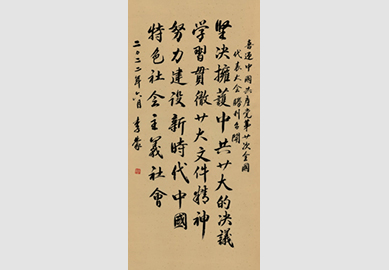 喜迎中國共產党第廿次全國
代表大會勝利召開
堅决擁護中共廿大的决議
学習貫徹廿大文件精神
努力建设新時代中國
特色社会主義社會
二〇二二年六月 李蒙